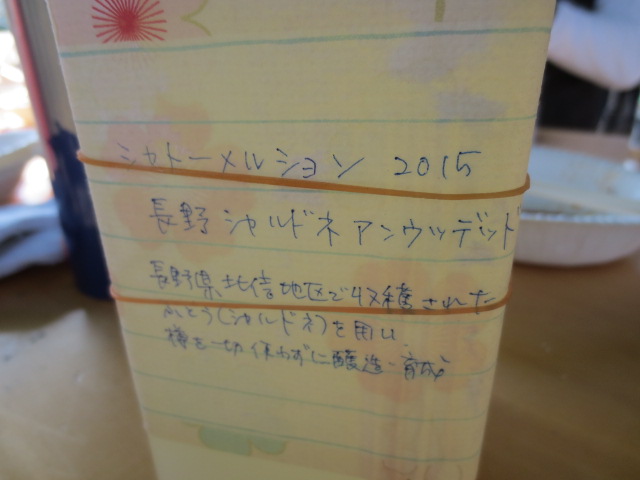 シャトーメルシャン 2015
長野 シャルドネ アンウッデッド
長野県北信地区で収穫された
ぶどう(シャルドネ)を用い、
樽を一切使わずに醸造・育成